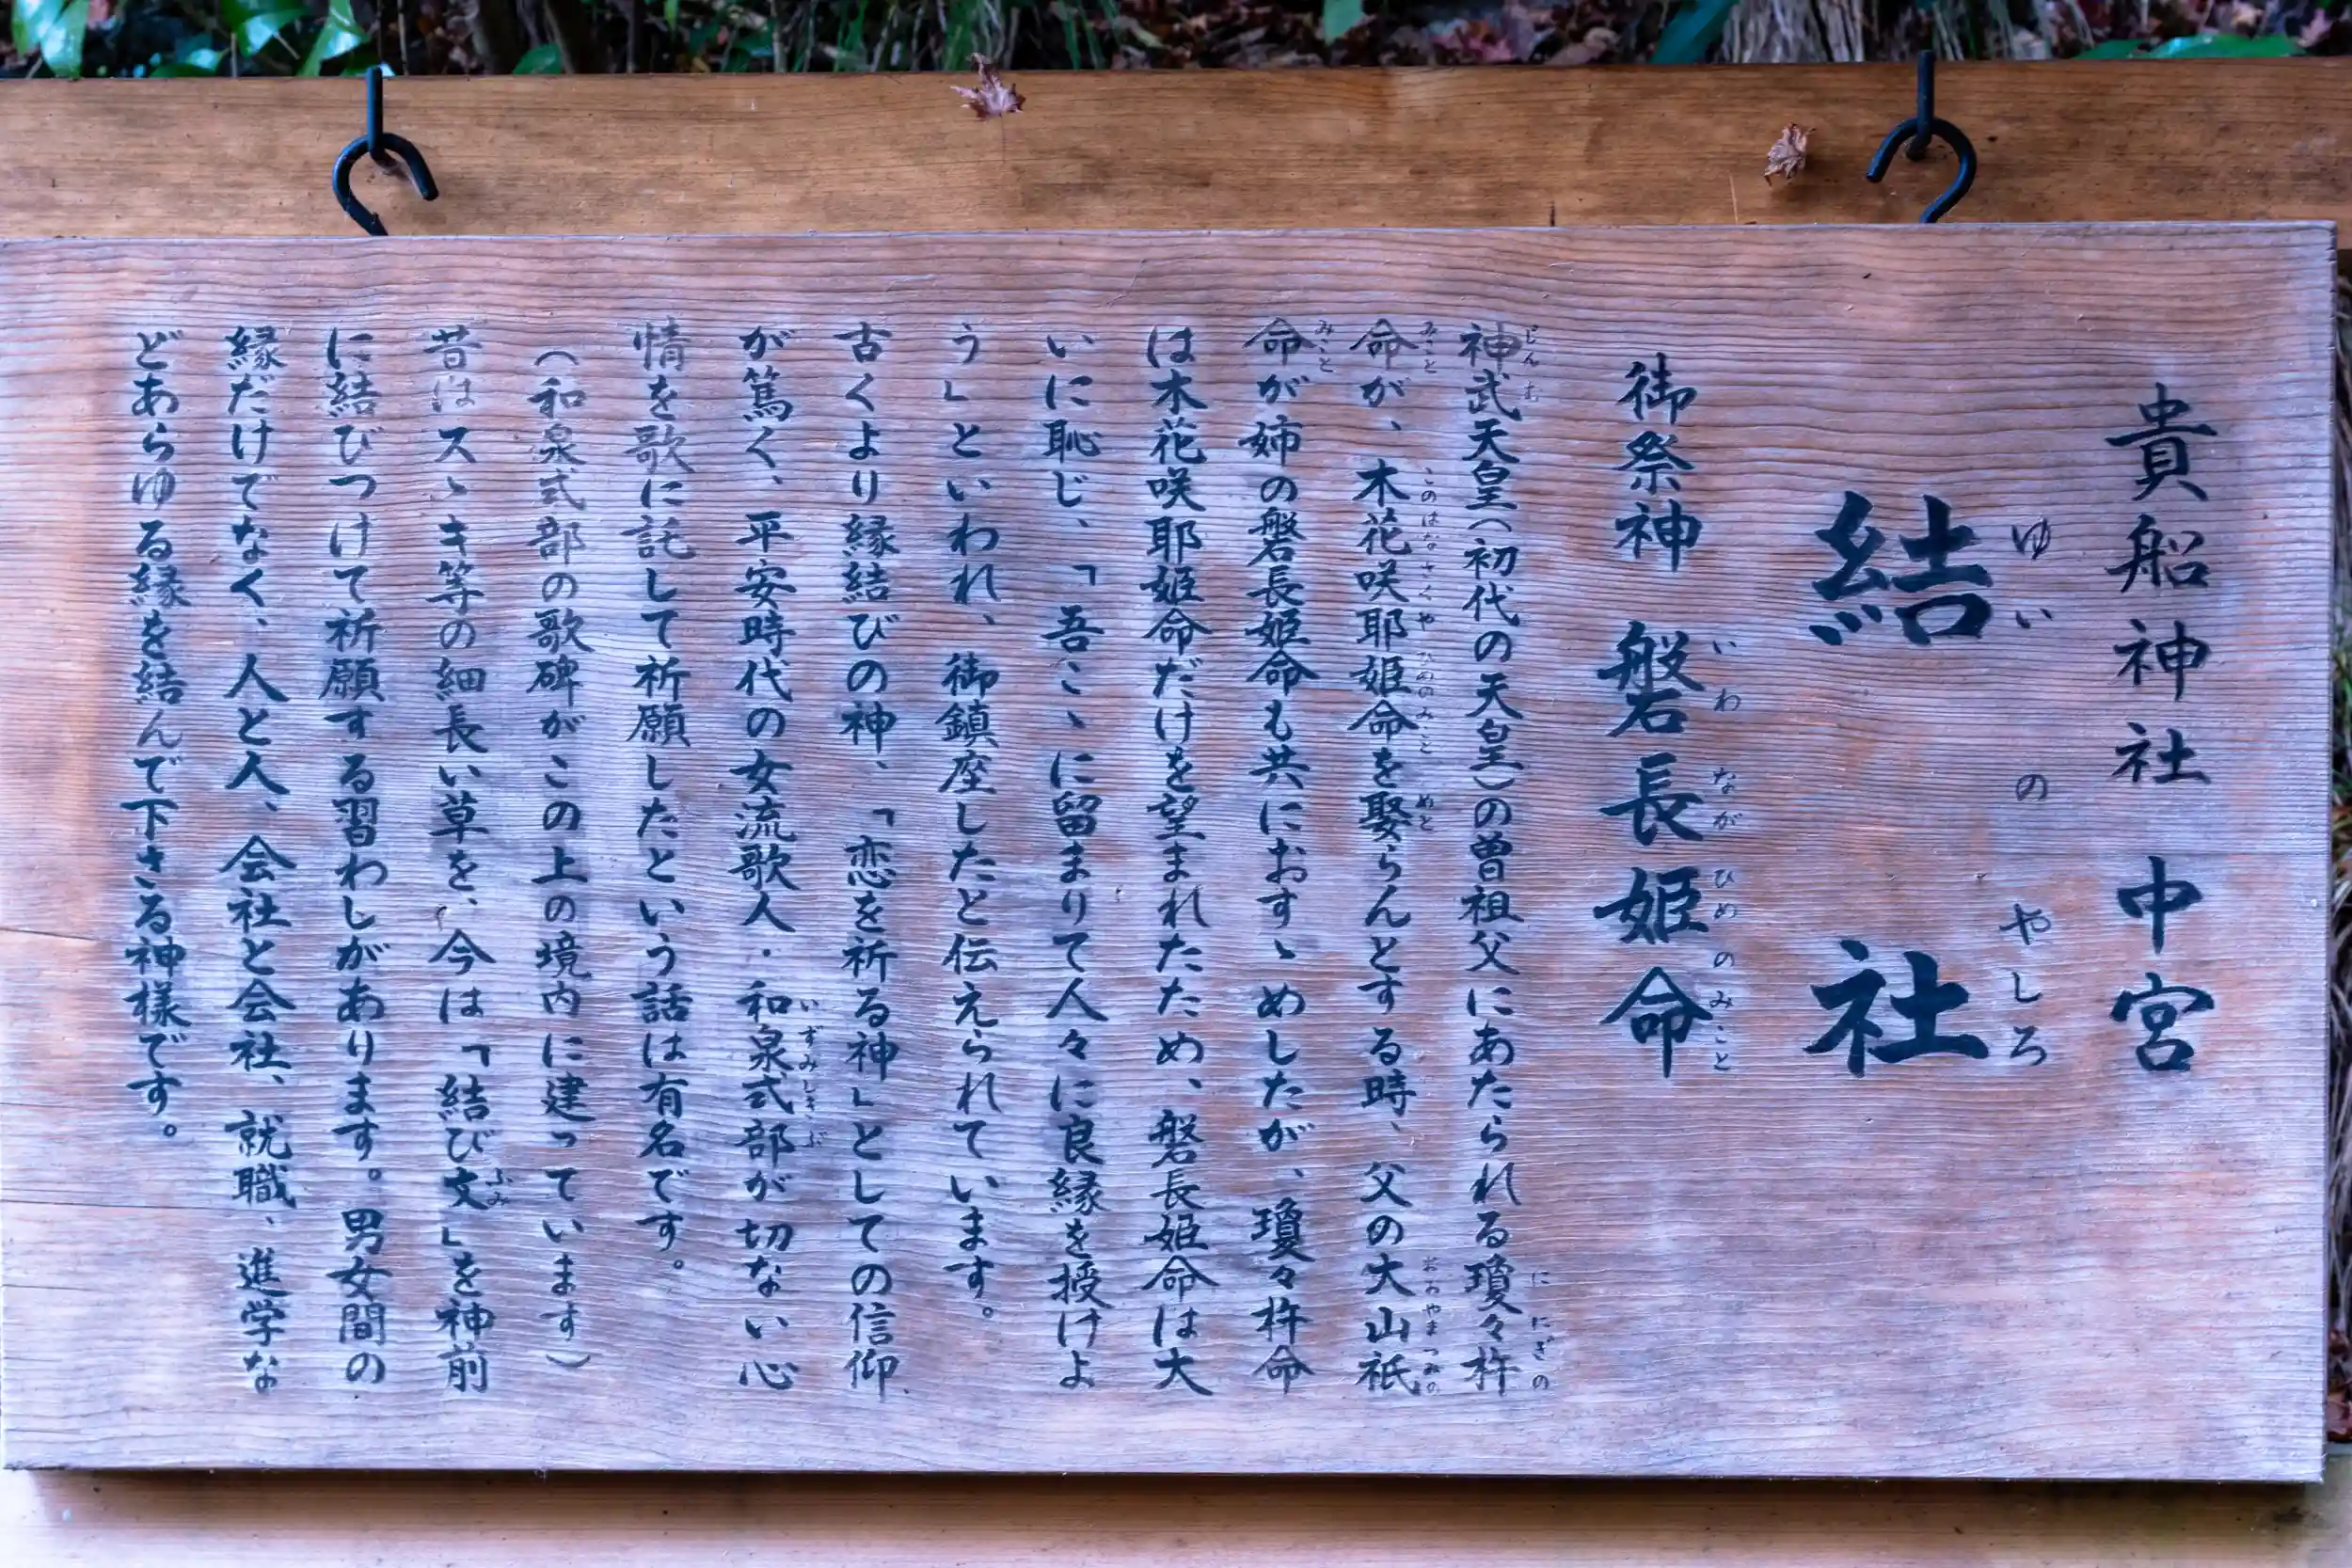 貴船神社 中宮
結社
ゆいのやしろ
御祭神 磐長姫命
いわながひめのみこと
神武天皇(初代の天皇)の曽祖父にあたられる瓊々杵
じんむ
ににぎの
命が、木花咲耶姫命を娶らんとする時、父の大山祇
みこと
このはなさくやひめのみこと
めと
おおやまつみの
命が姉の磐長姫命も共におすゝめしたが、瓊々杵命
みこと
は木花咲耶姫命だけを望まれたため、磐長姫命は大
いに恥じ、「吾こゝに留まりて人々に良縁を授けよ
う」といわれ、御鎮座したと伝えられています。
古くより縁結びの神、「恋を祈る神」としての信仰
が篤く、平安時代の女流歌人・和泉式部が切ない心
いずみしきぶ
情を歌に託して祈願したという話は有名です。
(和泉式部の歌碑がこの上の境内に建っています)
昔はスゝキ等の細長い草を、今は「結び文」を神前
ふみ
に結びつけて祈願する習わしがあります。男女間の
縁だけでなく、人と人、会社と会社、就職、進学な
どあらゆる縁を結んで下さる神様です。